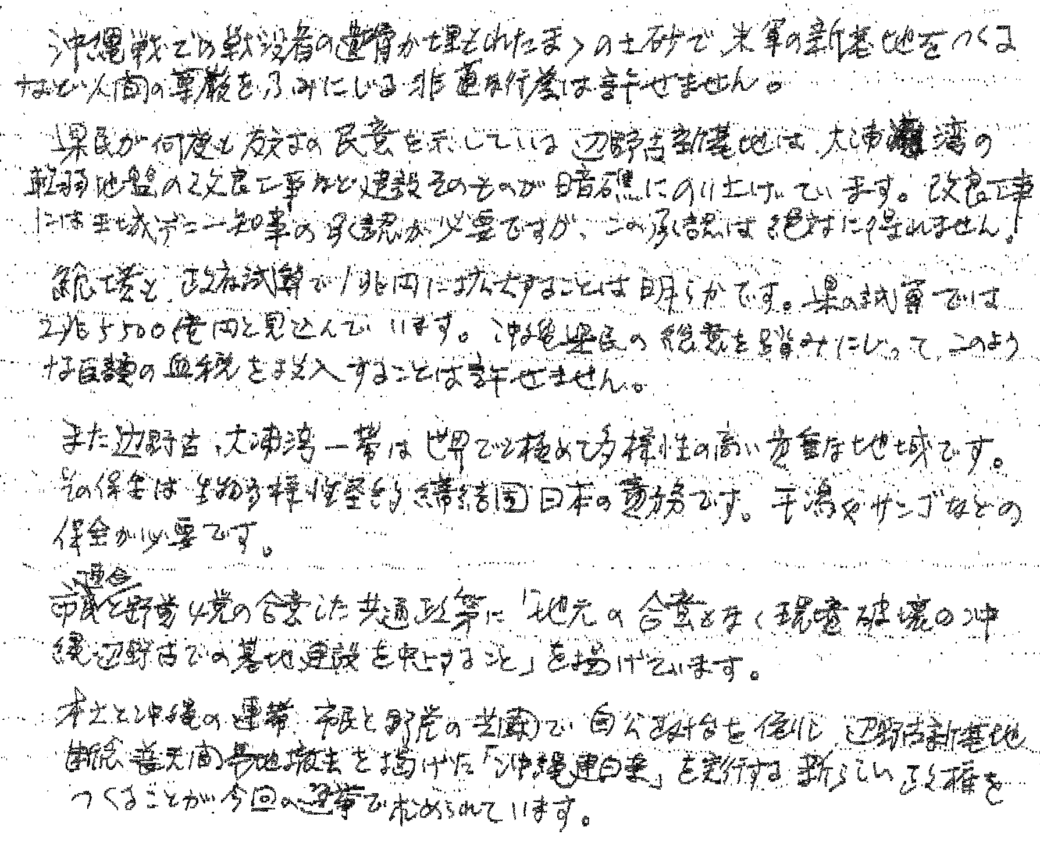 沖縄戦での戦没者の遺骨が埋もれたままの土砂で、米軍の新基地をつくる
など、人間の尊厳をふみにじる非道な行為は許せません。
県民が何度も反対の民意を示している辺野古新基地は、大浦湾の
軟弱地盤の改良工事など建設そのものが暗礁にのり上げています。改良工事
には玉城デニー知事の承認が必要ですが、この承認は絶対に得れません!
総工費も、政府試算で1兆円に拡大することは明らかです。県の試算では
2兆5500億円と見込んでいます。沖縄県民の総意を踏みにじって、このよう
な巨額の血税を投入することは許せません。
また辺野古、大浦湾一帯は世界でも極めて多様性の高い貴重な地域です。
その保全は生物多様性条約締結国日本の責務です。干潟やサンゴなどの
保全が必要です。
市民連合と野党4党の合意した共通政策に「地元の合意もなく環境破壊の沖
縄辺野古での基地建設を中止すること」を掲げています。
本土と沖縄の連帯、市民と野党の共闘で自公政治を倒し、辺野古新基地
断念、普天間基地撤去を掲げた「沖縄建白書」を実行する新らしい政権を
つくることが今回の選挙で求められています。